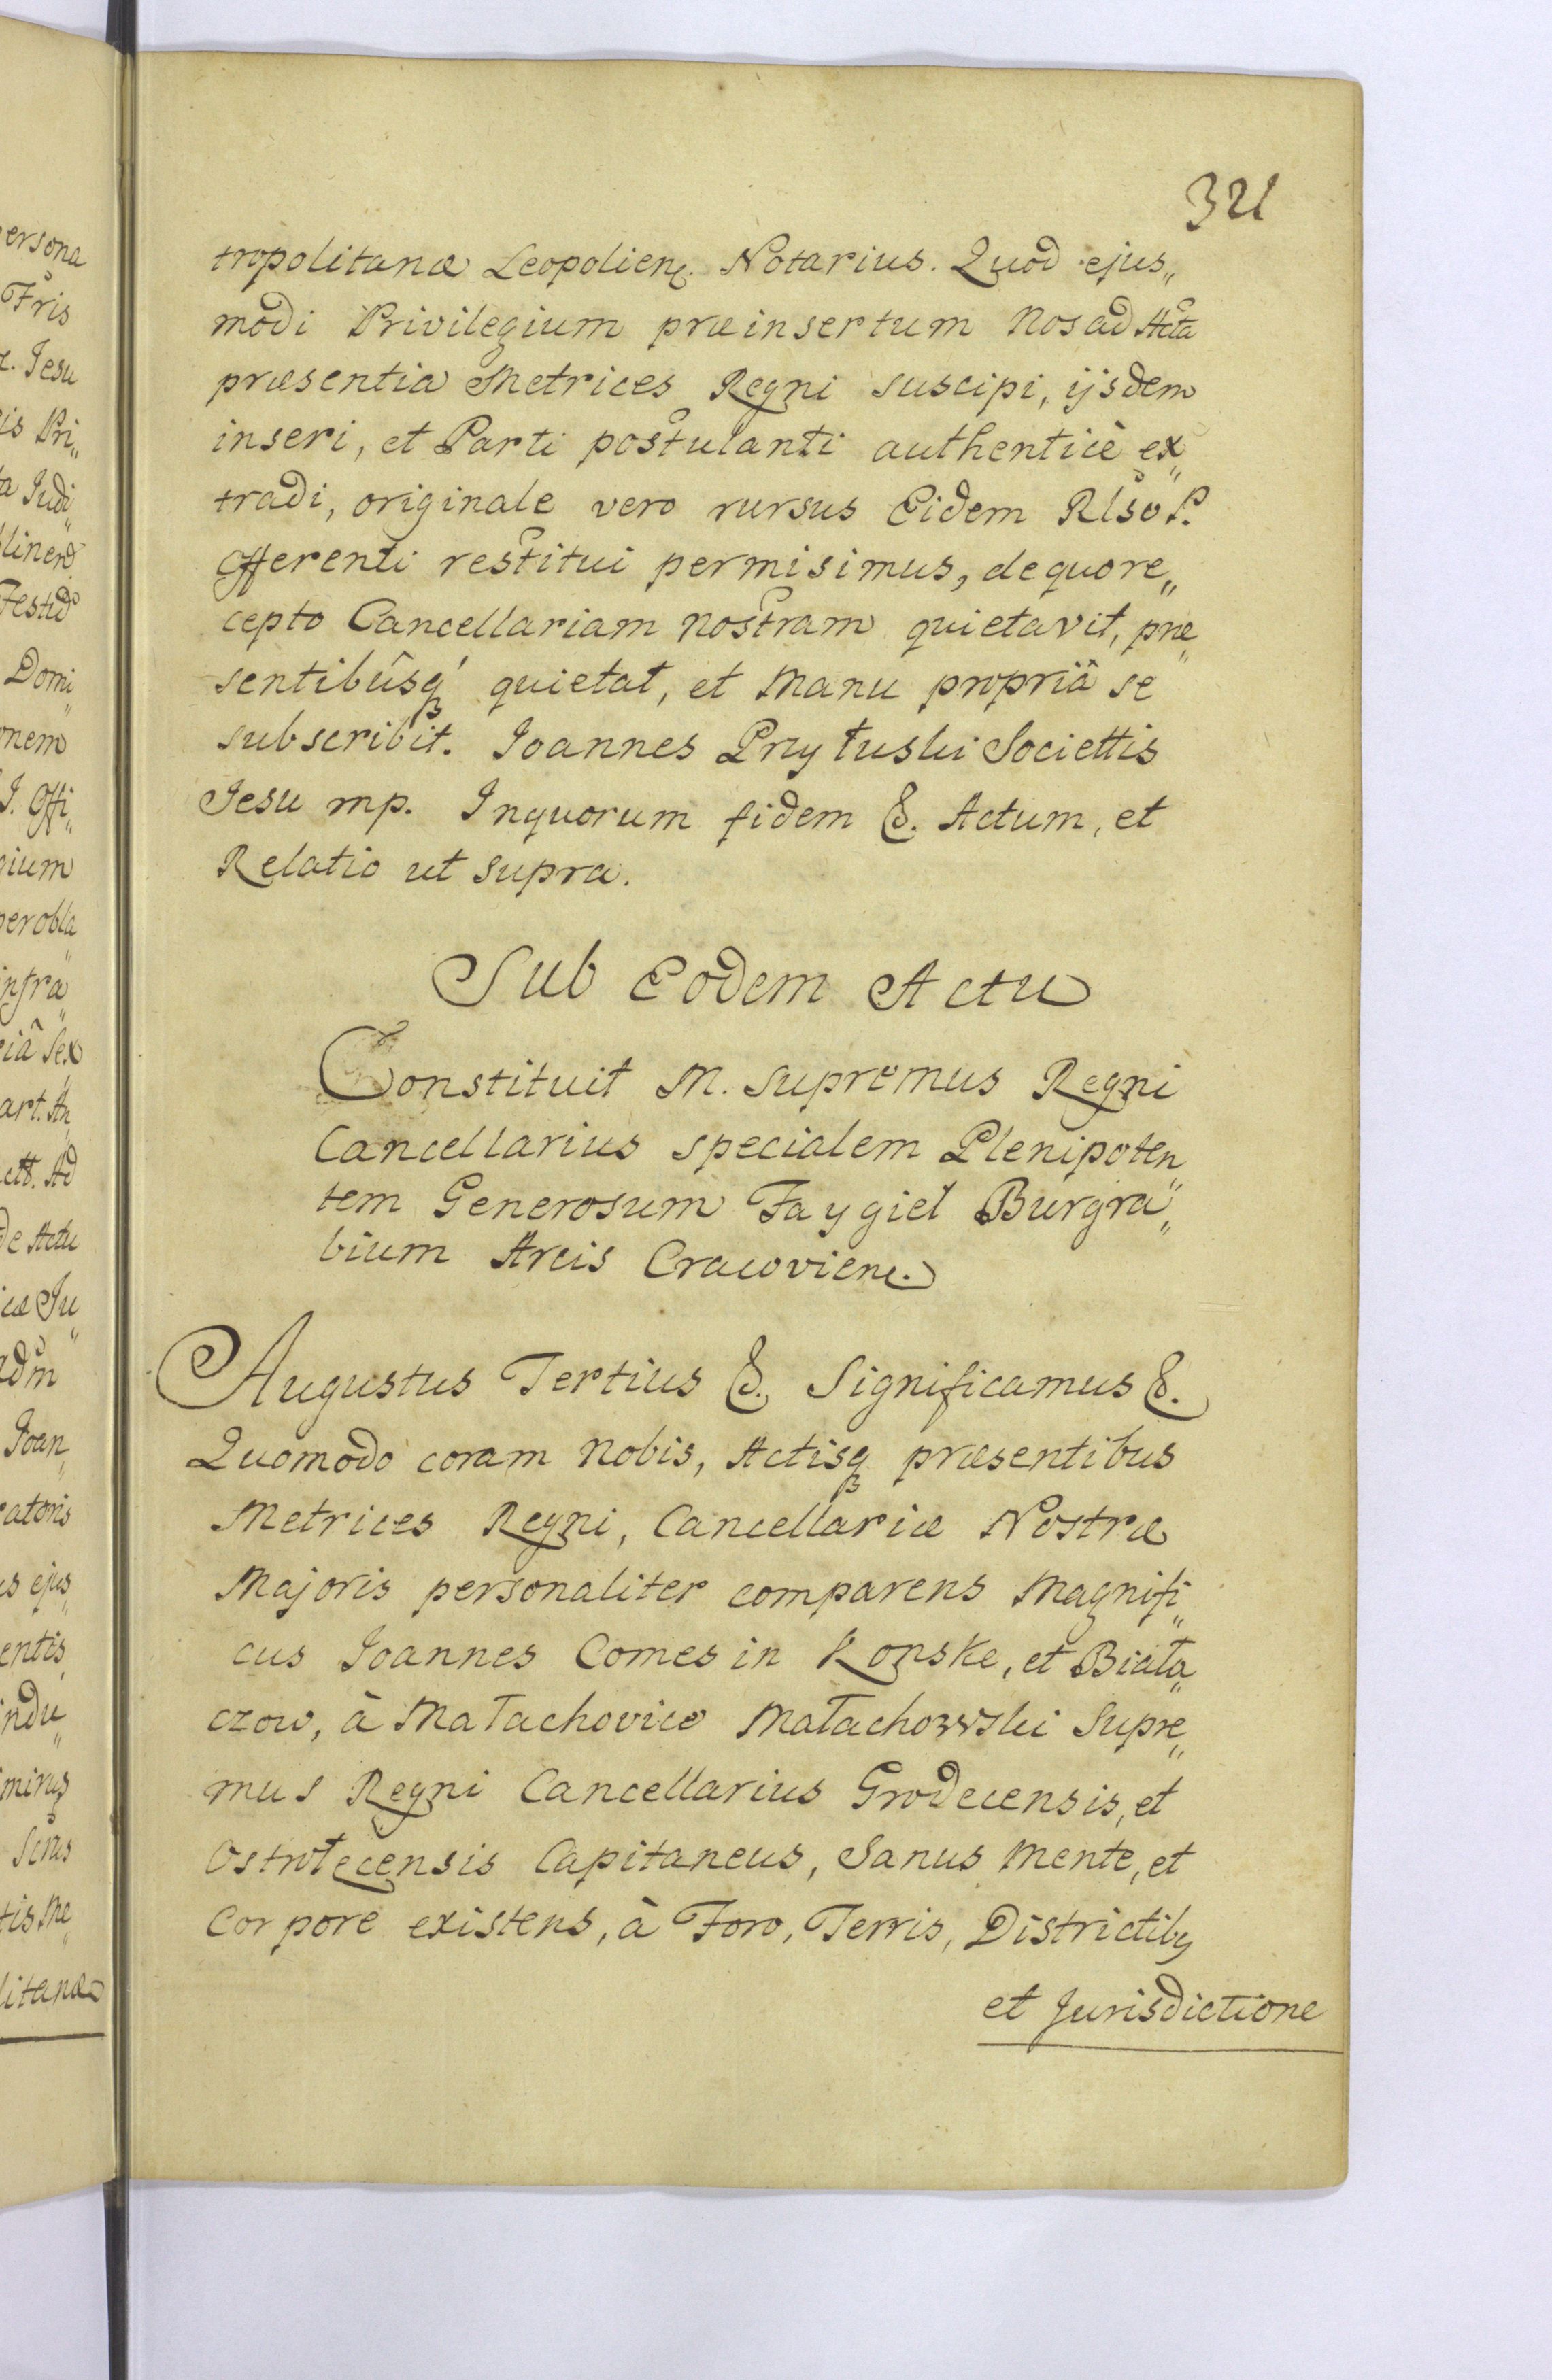 321
tropolitanæ Leopolien. Notarius. Quod ejus„
modi Privilegium præinsertum Nos ad Acta
præsentia Metrices Regni suscipi, ijsdem
inseri, et Parti postulanti authenticè ex„
tradi, originale vero rursus Eidem Rlso P.
Offerenti restitui permisimus, de quo re„
cepto Cancellariam nostram quietavit, præ„
sentibûsq́ quietat, et Manu propriâ se
subscribit. Joannes Przyłuski Societtis
Jesu mp. In quorum fidem &. Actum, et
Relatio ut supra.
Sub Eodem Actu
Constituit M. Supremus Regni
Cancellarius specialem Plenipoten„
tem Generosum Faygiel Burgra„
bium Arcis Cracovien.
Augustus Tertius &. Significamus &.
Quomodo coram Nobis, Actisq præsentibus
Metrices Regni, Cancellariæ Nostræ
Majoris personaliter comparens Magnifi„
cus Joannes Comes in Konskie, et Biała„
czow, à Małachovice Małachowski Supre„
mus Regni Cancellarius Grodecensis, et
Ostrołecensis Capitaneus, Sanus Mente, et
Corpore existens, à Foro, Terris, Districtibq
et Jurisdictione